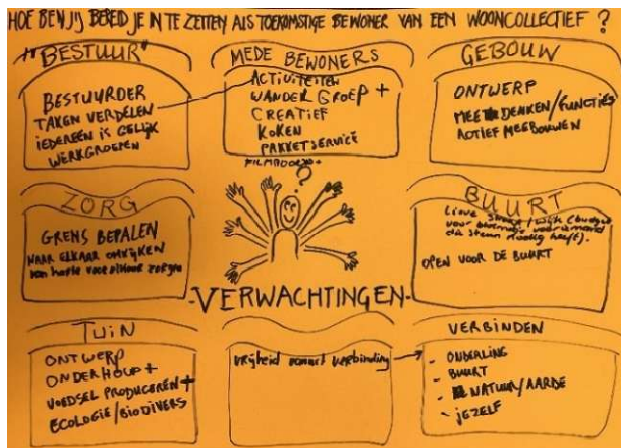 HOE BEN JIJ BEREID JE IN TE ZETTEN ALS TOEKOMSTIGE BEWONER VAN EEN WOONCOLLECTIEF ?
"BESTUUR"
BESTUURDER
TAKEN VERDELEN
IEDEREEN IS GELIJK
WERKGROEPEN
MEDE BEWONERS
ACTIVITEITEN
WANDEL GROEP +
CREATIEF
KOKEN
PAKKETSERVICE
GEBOUW
ONTWERP
MEE DENKEN/FUNCTIES
ACTIEF MEEBOUWEN
ZORG
GRENS BEPALEN
NAAR ELKAAR OMKIJKEN
van harte voor elkaar zorgen
?
BUURT
Lieve
voor iemand
die steun nodig heeft).
OPEN VOOR DE BUURT
-VERWACHTINGEN-
TUIN
ONTWERP
ONDERHOUD +
VOEDSEL PRODUCEREN +
ECOLOGIE/BIODIVERS
vrijheid vanuit verbinding
VERBINDEN
- ONDERLING
- BUURT
- NATUUR/AARDE
- JEZELF